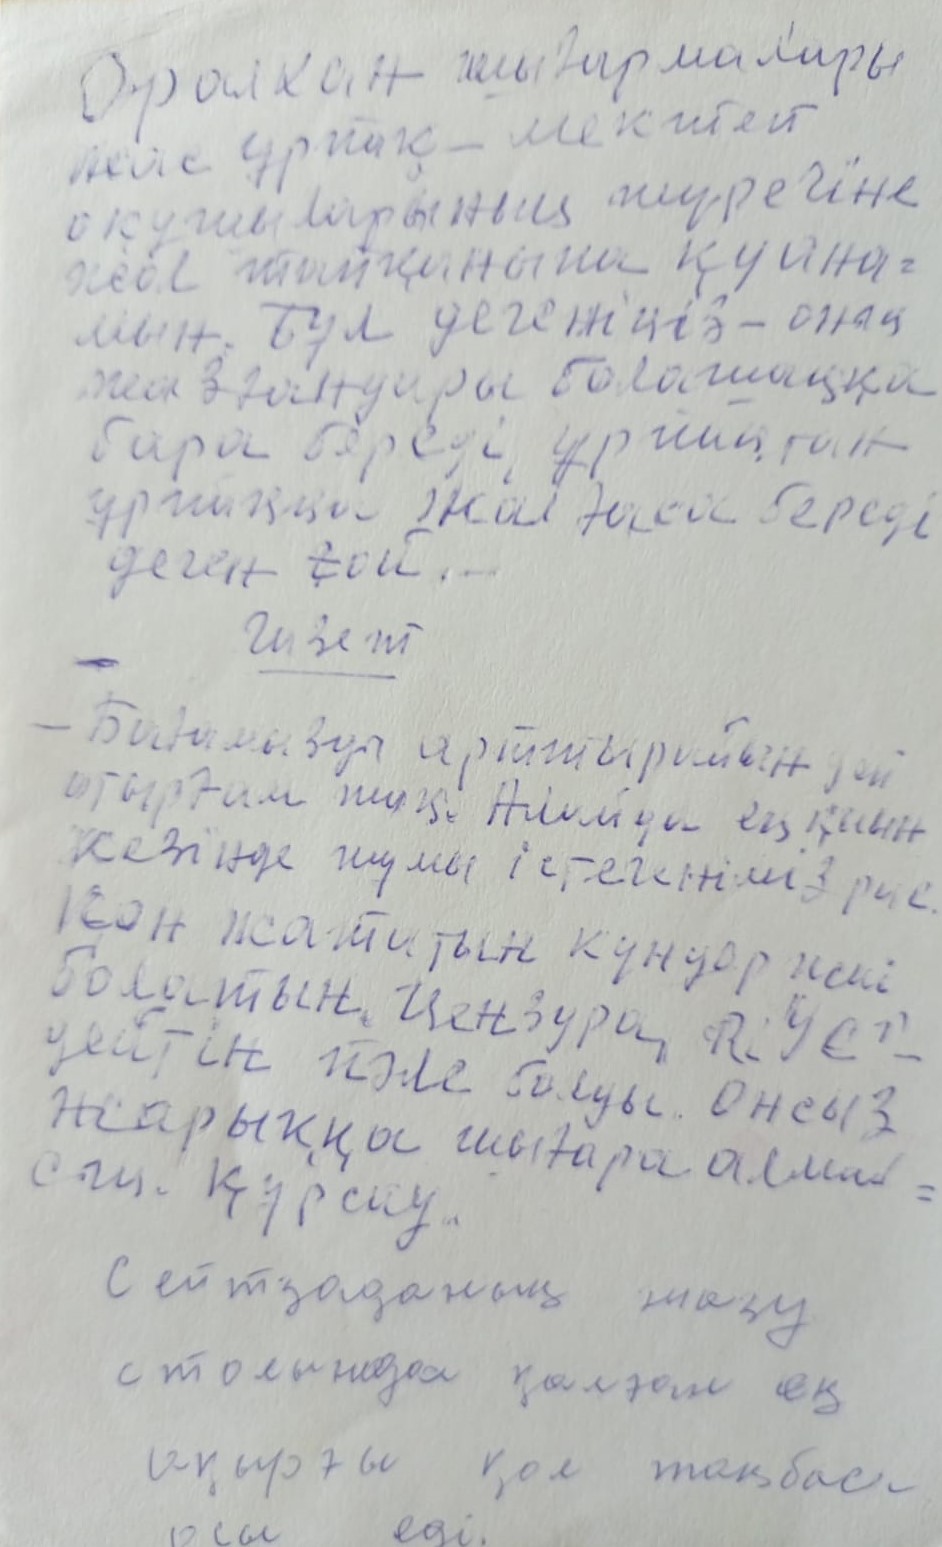 Оралхан шығармалары
жас ұрпақ – мектеп
оқушыларының жүрегіне
жол тапқанына қуана=
мын. Бұл дегеніңіз – оның
жазғандары болашаққа
бара береді, ұрпақтан
ұрпаққа жалғаса береді
деген ғой...
Газет
– Бағамызды арттырайын деп
отырғам жоқ. Алайда ең қиын
кезінде жұмыс істегеніміз рас.
Қон жататын күндер жиі
болатын. Цензура,
дейтін пәле болды. Онсыз
жарыққа шығара алмай=
сың. Құрсау.
Сейтзаданың жазу
столында қалған ең
ақырғы қол таңбасы
осы еді.